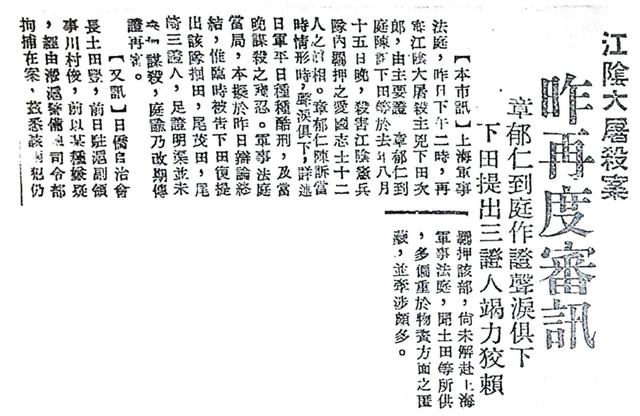 江陰大屠殺案
昨再度審訊
章郁仁到庭作證聲淚俱下
下田提出三證人竭力狡賴
【本市訊】上海軍事
法庭,昨日下午二時,再
江陰大屠殺主兇下田次
郎,由主要證 章郁仁到
庭陳 下田等於去年八月
十五日晚,殺害江陰憲兵
隊內羈押之愛國志士十二
人之 相。章郁仁陳訴當
時情形時,聲淚俱下,詳述
日軍平日種種酷刑,及當
晚謀殺之殘忍。軍事法庭
當局,本擬於昨日辯論終
結,惟臨時被告下田復提
出該隊 田,尾茂田,尾
崎三證人,足證明渠並未
謀殺,庭諭乃改期傳
證再審。
【又訊】日僑自治會
長土田豐,前日駐滬副領
事川村俊,前以某種嫌疑
,經由淞滬警備 司令部
拘捕在案,茲悉該 犯仍
羈押該部,尚未解赴上海
軍事法庭,聞土田等所供
,多側重於物資方面之匿
藏,並牽涉頗多。